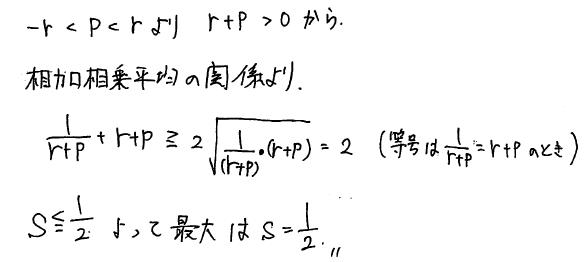 -r < p < r より r+p > 0 から.
相加相乗平均の関係より.
1/(r+p) + r+p ≧ 2√(1/(r+p)・(r+p)) = 2 (等号は 1/(r+p) = r+p のとき)
S ≦ 1/2 よって最大は S = 1/2 〃